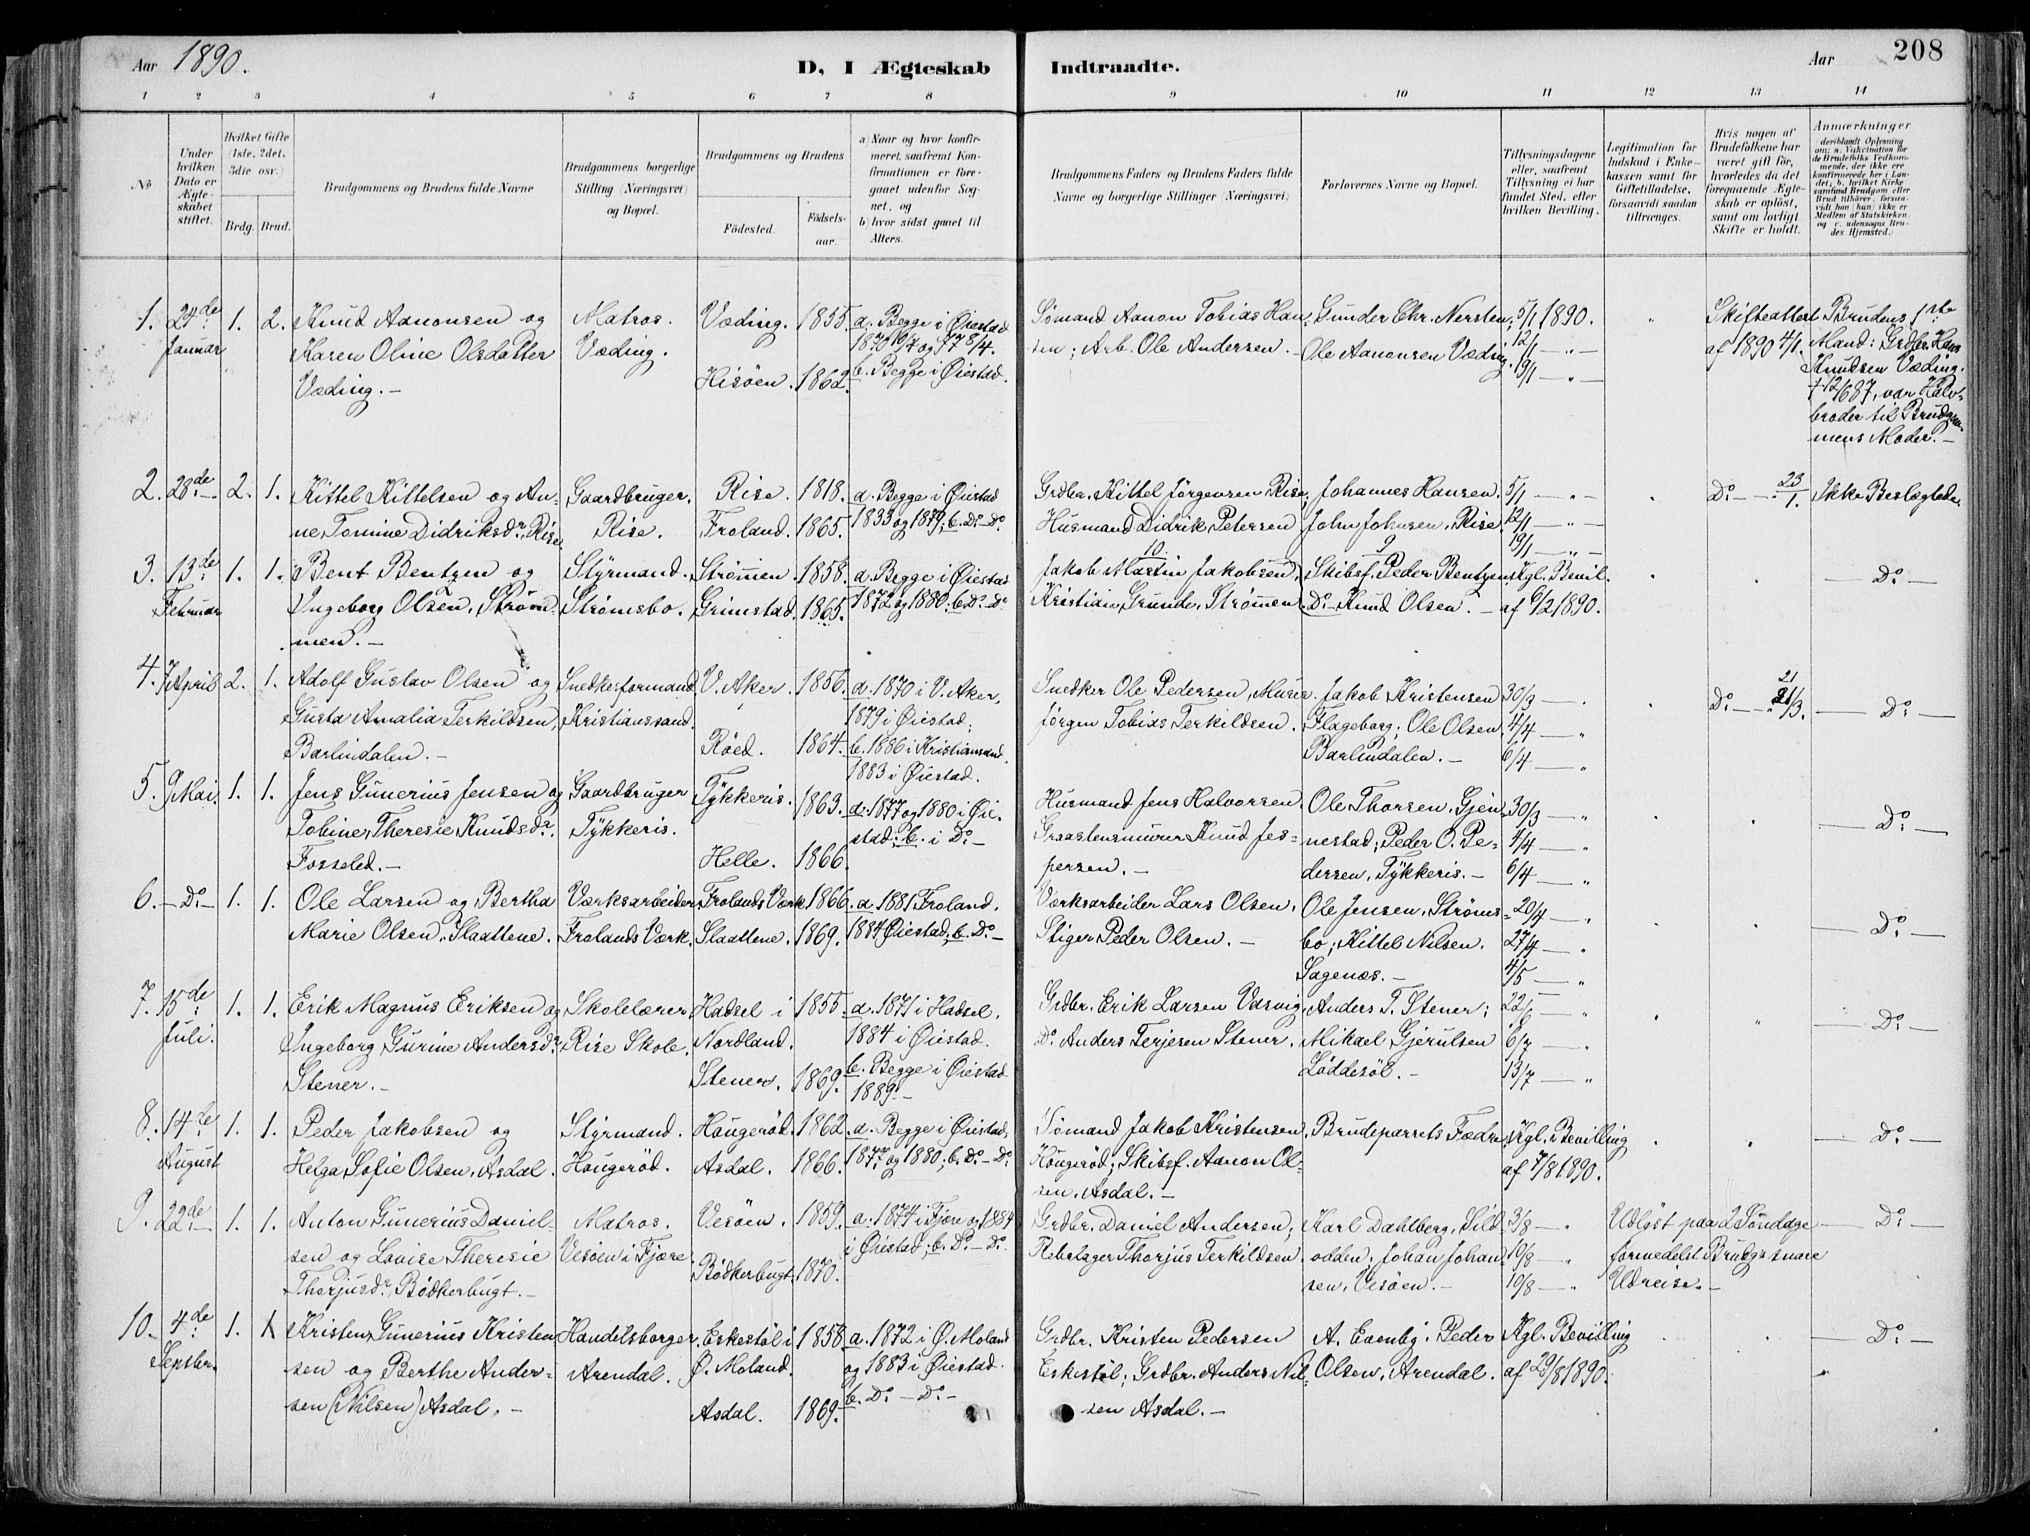 Aar 1890.
D, I Ægteskab
1 2 3 4 5 6 7 8
No
Under hvilken Dato er Ægteskabet stiftet.
Hvilket Gifte (1ste, 2det, 3die osv.)
Brdg. Brud.
Brudgommens og Brudens fulde Navne
Brudgommens borgerlige Stilling (Næringsvei) og Bopæl.
Brudgommens og Brudens
Födested. Födselsaar.
a) Naar og hvor konfirmeret, saafremt Konfirmationen er foregaaet udenfor Sognet, og
b) hvor sidst gaaet til Alters.
1. 24de Januar 1. 2. Knud Aanonsen og Matros. Væding. 1855. a. Begge i Øiestad
Karen Oline Olsdatter Væding. 1870 10/4 og 77 8/4.
Væding. – Hisöen. 1862. b. Begge i Øiestad.
2. 28de – 2. 1. Kittel Kittelsen og An- Gaardbruger. Rise. 1818. a. Begge i Øiestad
ne Tomine Didriksdr. Rise. Rise. Froland. 1865. 1833 og 1879; b. Do – Do.
3. 13de Februar 1. 1. Bent Bentzen og Styrmand. Strömmen. 1858. a. Begge i Øiestad
Ingeborg Olsen, Ström- Strömsbo. Grimstad. 1865. 1872 og 1880; b. Do – Do
men. –
4. 7 April 2. 1. Adolf Gustav Olsen og Snedkerformand V. Aker. 1856. a. 1870 i V. Aker,
Gusta Amalia Terkildsen, Kristianssand. 1879 i Øiestad;
Barlindalen. – Röed. 1864. b. 1886 i Kristianssand,
1883 i Øiestad.
5. 9 Mai. 1. 1. Jens Gunerius Jensen og Gaardbruger Tykkeris. 1863. a. 1877 og 1880 i Øie-
Tobine Theresie Knudsdr. Tykkeris. stad; b. i Do –
Fosseled. – Helle. 1866.
6. – Do – 1. 1. Ole Larsen og Bertha Værksarbeider. Frolands Værk 1866. a. 1881 Froland,
Marie Olsen, Slaattene. Frolands Værk. Slaattene. 1869. 1884 Øiestad, b. Do –
7. 15de Juli. 1. 1. Erik Magnus Eriksen og Skolelærer Hadsel i 1855. a. 1871 i Hadsel.
Ingeborg Gurine Andersdr. Rise Skole. Nordland. 1884 i Øiestad.
Stener. – Stener. 1869. b. Begge i Øiestad
1889. –
8. 14de August 1. 1. Peder Jakobsen og Styrmand. Hougeröd. 1862. a. Begge i Øiestad,
Helga Sofie Olsen, Asdal. Hougeröd. Asdal. 1866. 1877 og 1880; b. Do – Do.
9. 22de – 1. 1. Anton Gunerius Daniel- Matros. Vesöen. 1859. a. 1874 i Fjære og 1884
sen og Lovise Theresie Vesöen i Fjære. i Øiestad; b. Do – Do –
Thorjusdr. Bödkerbugt. – Bödkerbugt. 1870.
10. 4de Septbr. 1. 1. Kristen Gunerius Kristen- Handelsborger Eskestöl i 1858. a. 1872 i Ø. Moland
sen og Berthe Ander- Arendal. Ø. Moland. og 1883 i Øiestad.
sen (Nilsen) Asdal. – Asdal. 1869. b. Do – Do –
Indtraadte.
Aar 208
9 10 11 12 13 14
Brudgommens Faders og Brudens Faders fulde Navne og borgerlige Stillinger (Næringsvei)
Forlovernes Navne og Bopæl.
Tillysningsdagene eller, saafremt Tillysning ei har fundet Sted, efter hvilken Bevilling.
Legitimation for Indskud i Enkekassen samt for Giftetilladelse, forsaavidt saadan tiltrænges.
Hvis nogen af Brudefolkene har været gift för, hvorledes da det foregaaende Ægteskab er oplöst, samt om lovligt Skifte er holdt.
Anmærkninger deriblandt Oplysning om; a. Vakcination for de Brudefolks Vedkommende, der ikke ere konfirmerede her i Landet; b. hvilket Kirkesamfund Brudgom eller Brud tilhörer, forsaavidt han (hun) ikke er Medlem af Statskirken, og c. udensogns Brudes Hjemsted.
Sömand Aanon Tobias Han- Gunder Chr. Nersten; 5/1 1890. " Skifteattest Brudens 1ste
sen; Arb. Ole Andersen. – Ole Aanonsen Væding. 12/1 – " – af 1890 4/1. Mand: Grdbr. Hans
19/1 – " – Knudsen Væding.
† 12/6 87, var Halv-
broder til Brudgom-
mens Moder. –
Grdbr. Kittel Jörgensen Rise; Johannes Hansen. 5/1 – " – Do – – 23/1. Ikke Beslægtede
Husmand Didrik Petersen John Johnsen, Rise. 12/1 – " –
10. 9 19/1 – " –
Jakob Martin Jakobsen, Skibsf. Peder Bentzen Kgl. Bevil. – Do –
Kristian Grunde, Strömmen. Do – Knud Olsen. – af 6/2 1890.
Snedker Ole Pedersen, Murer Jakob Kristensen 30/3 – . Do – – 21 21/3. – Do –
Jörgen Tobias Terkildsen. Flageborg; Ole Olsen 4/4 – "
Barlindalen. – 6/4 – "
Husmand Jens Halvorsen. Ole Thorsen, Gjen- 30/3 – " – Do –
Graastensmurer Knud Jes- nestad; Peder O. Pe- 4/4 – "
persen. – dersen, Tykkeris. – 6/4 – "
Værksarbeider Lars Olsen. Ole Jensen, Ströms- 20/4 – " – Do –
Stiger Peder Olsen. – bo; Kittel Nilsen. 27/4 – "
Sagenæs. – 4/5 – "
Grdbr. Erik Larsen Vasvig, Anders T. Stener; 22/6 – " – Do –
Do Anders Terjesen Stener. Mikael Gjerulsen 6/7 – "
Löddesöl. – 13/7 – "
Sömand Jakob Kristensen, Brudeparrets Fædre Kgl. Bevilling – Do –
Hougeröd; Skibsf. Aanon Ol- af 7/8 1890.
sen, Asdal. –
Grdbr. Daniel Andersen; Karl Dahlberg, Sild- 3/8 – " Udlöst paa 2 Söndage – Do –
Rebslager Thorjus Terkildsen. odden; Johan Johan- 10/8 – " formedelst Brudg.s snare
sen, Vesöen. – 10/8 – " Udreise. –
Grdbr. Kristen Pedersen A. Evenbÿ. Peder Kgl. Bevilling – Do –
Eskestöl; Grdbr. Anders Nil- Olsen, Arendal. af 29/8 1890.
sen Asdal. –